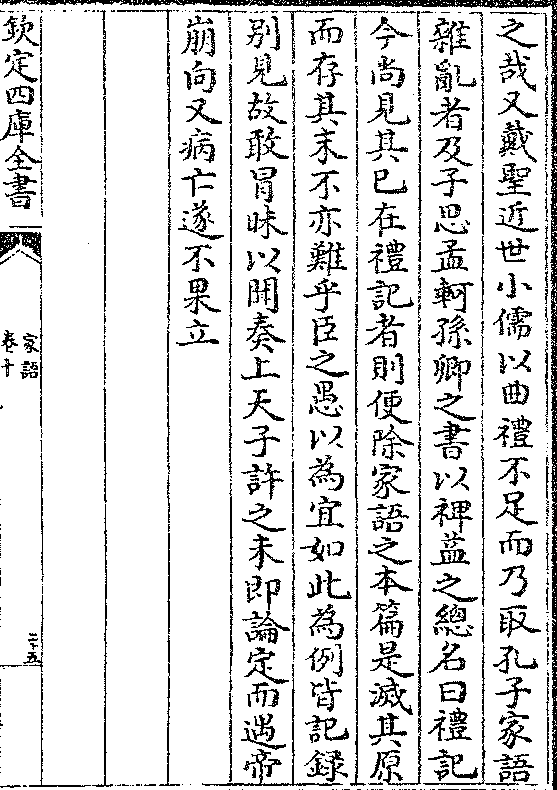 之哉又戴聖近世小儒以曲禮不足而乃取孔子家語
雜亂者及子思孟軻孫卿之書以裨益之總名曰禮記
今尚見其已在禮記者則便除家語之本篇是滅其原
而存其末不亦難乎臣之愚以為宜如此為例皆記録
别見故敢冒昧以聞奏上天子許之未即論定而遇帝
崩向又病亡遂不果立
欽定四庫全書
家語
卷十
二十五